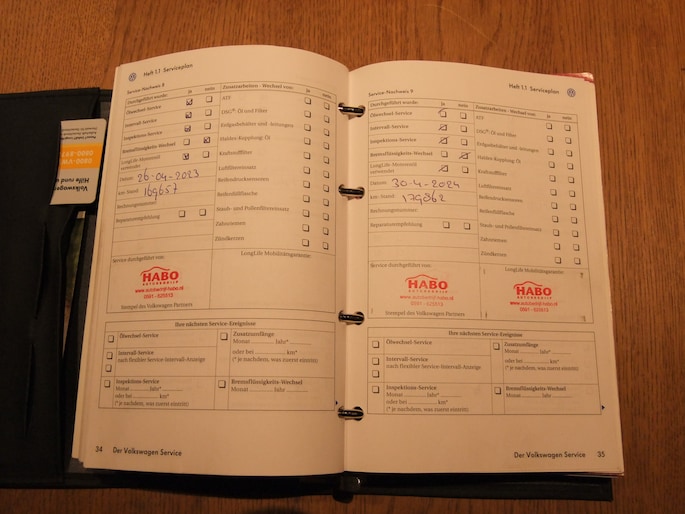 Heft 1.1 Serviceplan
Service-Nachweis 8
Durchgeführt wurde: ja nein
Ölwechsel-Service
Intervall-Service
Inspektions-Service
Bremsflüssigkeits-Wechsel
LongLife Motorenöl
verwendet
Datum: 26-04-2023
km-Stand: 169657
Rechnungsnummer:
Reparaturempfehlung
Zusatzarbeiten - Wechsel von: ja nein
ATF
DSG®-Öl und Filter
Erdgasbehälter und -leitungen
Haldex-Kupplung: Öl
Kraftstofffilter
Luftfiltereinsatz
Reifendrucksensoren
Reifenfüllflasche
Staub- und Pollenfiltereinsatz
Zahnriemen
Zündkerzen
Service durchgeführt von:
LongLife Mobilitätsgarantie:
HABO
AUTOBEDRIJF
www.autobedrijf-habo.nl
0591 - 625513
Stempel des Volkswagen Partners
Ihre nächsten Service-Ereignisse
Ölwechsel-Service
Intervall-Service
nach flexibler Service-Intervall-Anzeige
Inspektions-Service
Monat .............. Jahr*
oder bei .............. km*
(* je nachdem, was zuerst eintritt)
Zusatzumfänge
Monat .............. Jahr* ..............
oder bei .............. km*
(* je nachdem, was zuerst eintritt)
Bremsflüssigkeits-Wechsel
Monat .............. Jahr ..............
34 Der Volkswagen Service
Heft 1.1 Serviceplan
Service-Nachweis 9
Durchgeführt wurde: ja nein
Ölwechsel-Service
Intervall-Service
Inspektions-Service
Bremsflüssigkeits-Wechsel
LongLife Motorenöl
verwendet
Datum: 30-4-2024
km-Stand: 179862
Rechnungsnummer:
Reparaturempfehlung
Zusatzarbeiten - Wechsel von: ja nein
ATF
DSG®-Öl und Filter
Erdgasbehälter und -leitungen
Haldex-Kupplung: Öl
Kraftstofffilter
Luftfiltereinsatz
Reifendrucksensoren
Reifenfüllflasche
Staub- und Pollenfiltereinsatz
Zahnriemen
Zündkerzen
Service durchgeführt von:
LongLife Mobilitätsgarantie:
HABO
AUTOBEDRIJF
www.autobedrijf-habo.nl
0591 - 625513
HABO
AUTOBEDRIJF
www.autobedrijf-habo.nl
0591 - 625513
Stempel des Volkswagen Partners
Ihre nächsten Service-Ereignisse
Ölwechsel-Service
Intervall-Service
nach flexibler Service-Intervall-Anzeige
Inspektions-Service
Monat .............. Jahr*
oder bei .............. km*
(* je nachdem, was zuerst eintritt)
Zusatzumfänge
Monat .............. Jahr* ..............
oder bei .............. km*
(* je nachdem, was zuerst eintritt)
Bremsflüssigkeits-Wechsel
Monat .............. Jahr ..............
Der Volkswagen Service 35